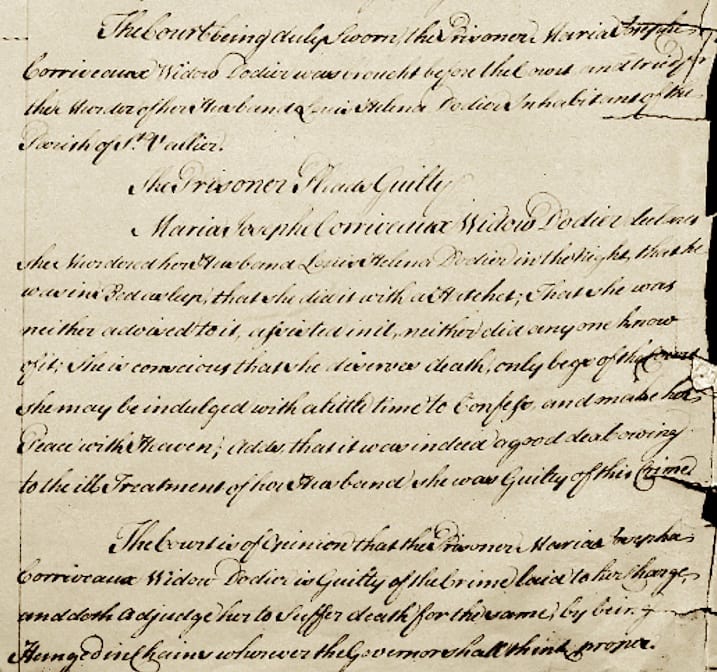 The Court being duly Sworn, the Prisoner Maria Josepha
Corriveaux Widow Dodier was brought before the Court and tried for
the Murder of her Husband Louis Helena Dodier Inhabitant of the
Parish of St. Vallier.
The Prisoner Pleads Guilty
Maria Josepha Corriveaux Widow Dodier declares
she Murdered her Husband Louis Helena Dodier in the Night, that he
was in Bed asleep, that she did it with a Hatchet; That she was
neither advised to it, assisted in it, neither did any one know
of it; she is conscious that she deserves death, only begs of the Court
she may be indulged with a little time to Confess, and make her
Peace with Heaven; Adds, that it was indeed a good deal owing
to the ill Treatment of her Husband, she was Guilty of this Crime.
The Court is of Opinion that the Prisoner Maria Josepha
Corriveaux Widow Dodier is Guilty of the Crime laid to her Charge
and doth Adjudge her to Suffer death for the same, by being
Hanged in Chains wherever the Governor shall think proper.